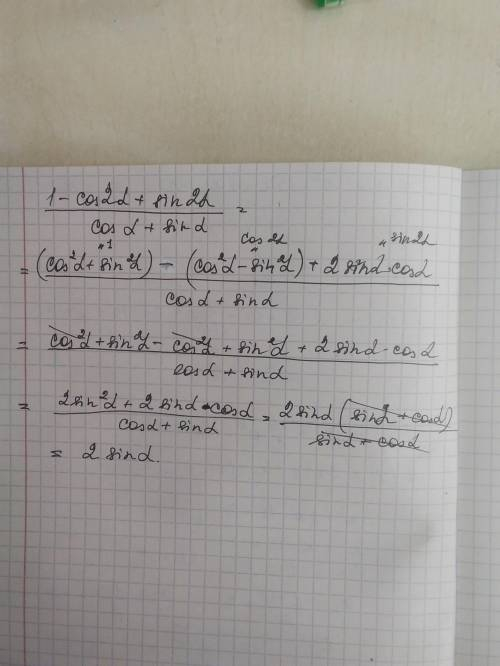 1 - cos2α + sin2α / cosα + sinα =
"1 cos2α "sin2α
= (cos²α + sin²α) - (cos²α - sin²α) + 2sinα·cosα / cosα + sinα
= cos²α + sin²α - cos²α + sin²α + 2sinα·cosα / cosα + sinα
= 2sin²α + 2sinα·cosα / cosα + sinα = 2sinα (sinα + cosα) / sinα + cosα
= 2sinα.